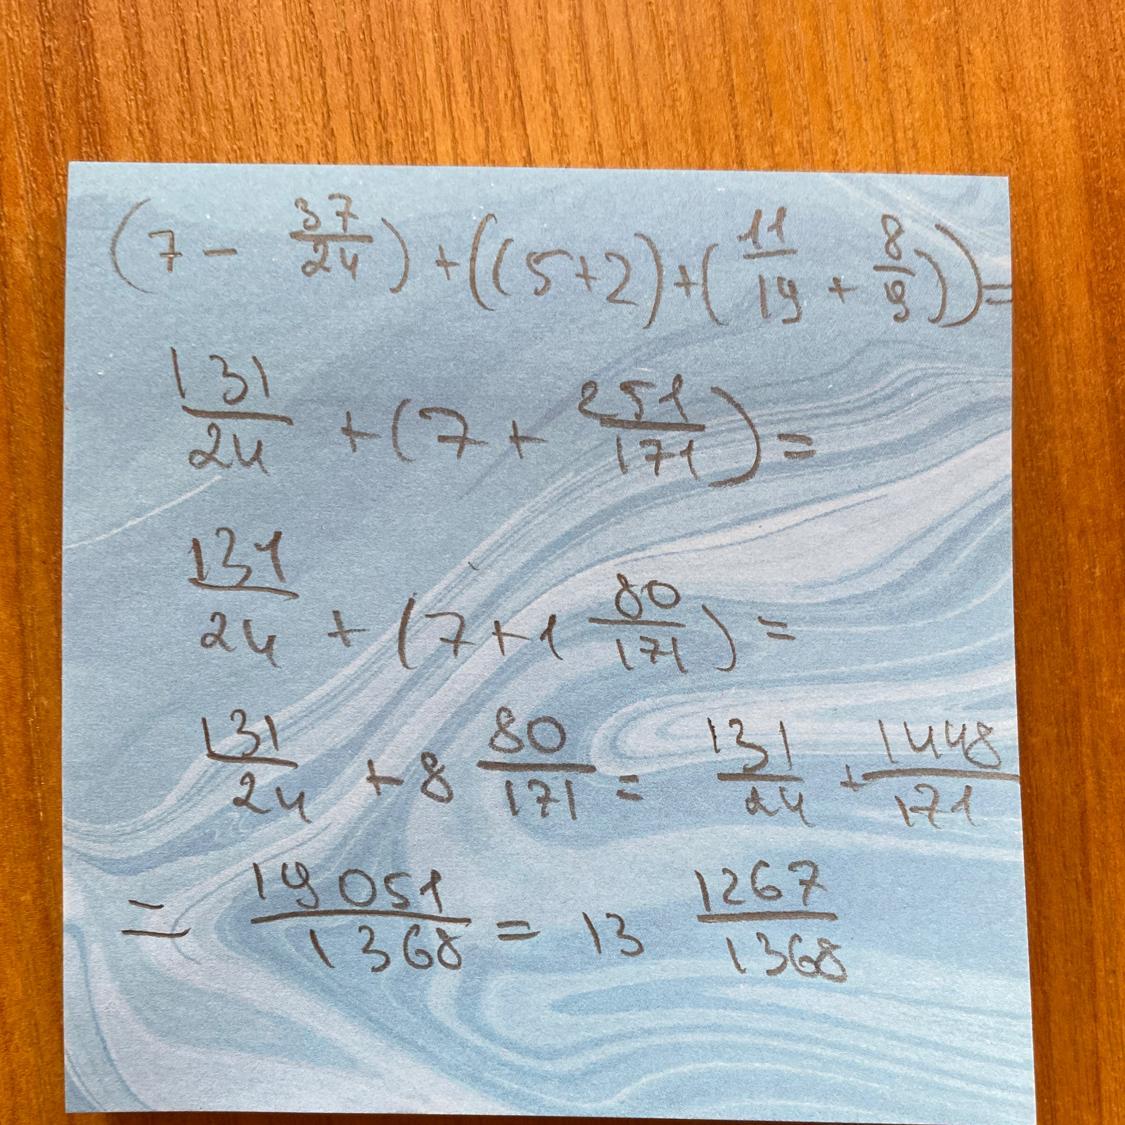 (7 - 37/24) + ((5+2) + (11/19 + 8/9)) =
131/24 + (7 + 251/171) =
131/24 + (7 + 1 80/171) =
131/24 + 8 80/171 = 131/24 + 1448/171
= 19051/1368 = 13 1267/1368